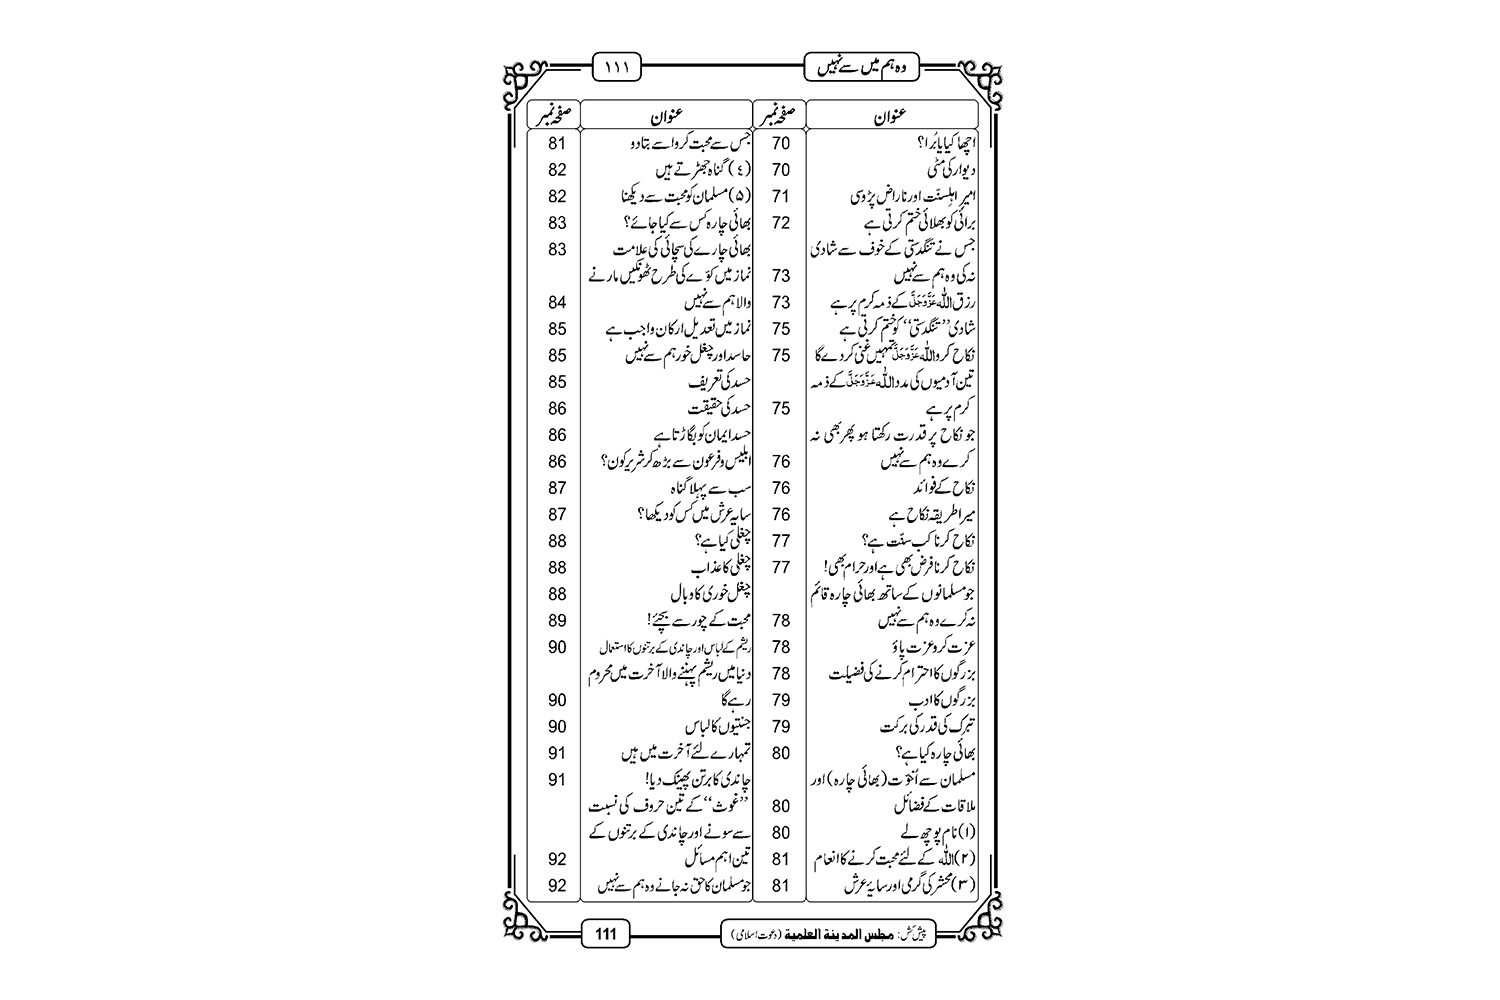 وہ ہم میں سے نہیں
١١١
عنوان صفحہ نمبر
اچھا کیا یا بُرا؟ 70
دیوار کی مٹی 70
امیرِ اہلِسنّت اور ناراض پڑوسی 71
برائی کو بھلائی ختم کرتی ہے 72
جس نے تنگدستی کے خوف سے شادی
نہ کی وہ ہم سے نہیں 73
رزق اللہ عَزَّوَجَلَّ کے ذمہ کرم پر ہے 73
شادی ’’تنگدستی‘‘ کو ختم کرتی ہے 75
نکاح کرو اللہ عَزَّوَجَلَّ تمہیں غنی کر دے گا 75
تین آدمیوں کی مدد اللہ عَزَّوَجَلَّ کے ذمہ
کرم پر ہے 75
جو نکاح پر قدرت رکھتا ہو پھر بھی نہ
کرے وہ ہم سے نہیں 76
نکاح کے فوائد 76
میرا طریقہ نکاح ہے 76
نکاح کرنا کب سنّت ہے؟ 77
نکاح کرنا فرض بھی ہے اور حرام بھی! 77
جو مسلمانوں کے ساتھ بھائی چارہ قائم
نہ کرے وہ ہم سے نہیں 78
عزت کرو عزت پاؤ 78
بزرگوں کا احترام کرنے کی فضیلت 78
بزرگوں کا ادب 79
تبرک کی قدر کی برکت 79
بھائی چارہ کیا ہے؟ 80
مسلمان سے اُخوّت (بھائی چارہ) اور
ملاقات کے فضائل 80
(١) نام پوچھ لے 80
(٢) اللہ کے لئے محبت کرنے کا انعام 81
(٣) محشر کی گرمی اور سایۂ عرش 81
عنوان صفحہ نمبر
جس سے محبت کرو اسے بتا دو 81
(٤) گناہ جھڑتے ہیں 82
(٥) مسلمان کو محبت سے دیکھنا 82
بھائی چارہ کس سے کیا جائے؟ 83
بھائی چارے کی سچائی کی علامت 83
نماز میں کوّے کی طرح ٹھونگیں مارنے
والا ہم سے نہیں 84
نماز میں تعدیلِ ارکان واجب ہے 85
حاسد اور چغل خور ہم سے نہیں 85
حسد کی تعریف 85
حسد کی حقیقت 86
حسد ایمان کو بگاڑتا ہے 86
ابلیس و فرعون سے بڑھ کر شریر کون؟ 86
سب سے پہلا گناہ 87
سایہ عرش میں کس کو دیکھا؟ 87
چغلی کیا ہے؟ 88
چغلی کا عذاب 88
چغل خوری کا وبال 88
محبت کے چور سے بچئے! 89
ریشم کے لباس اور چاندی کے برتنوں کا استعمال 90
دنیا میں ریشم پہننے والا آخرت میں محروم
رہے گا 90
جنتیوں کا لباس 90
تمہارے لئے آخرت میں ہیں 91
چاندی کا برتن پھینک دیا! 91
’’غوث‘‘ کے تین حروف کی نسبت
سے سونے اور چاندی کے برتنوں کے
تین اہم مسائل 92
جو مسلمان کا حق نہ جانے وہ ہم سے نہیں 92
پیش کش: مجلس المدینة العلمیة (دعوتِ اسلامی)
111